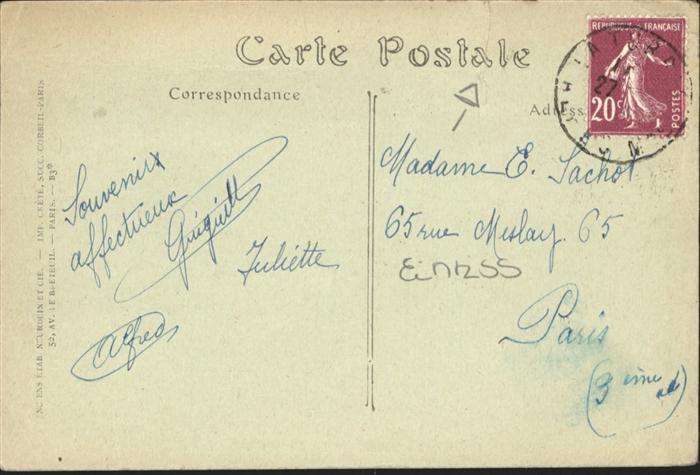 Carte Postale
Correspondance
Adresse
RÉPUBLIQUE FRANÇAISE
20c
POSTES
Souvenirs
affectueux
Juliette
Alfred
Madame E. Sachot
65 rue Meslay 65
Paris
(3ème
ANCENS ETAB. NEURDEIN ET CIE. — IMP. CRÉTÉ, SUCC. CORBEIL-PARIS
52, AV. DE BRETEUIL. — PARIS. — B3º